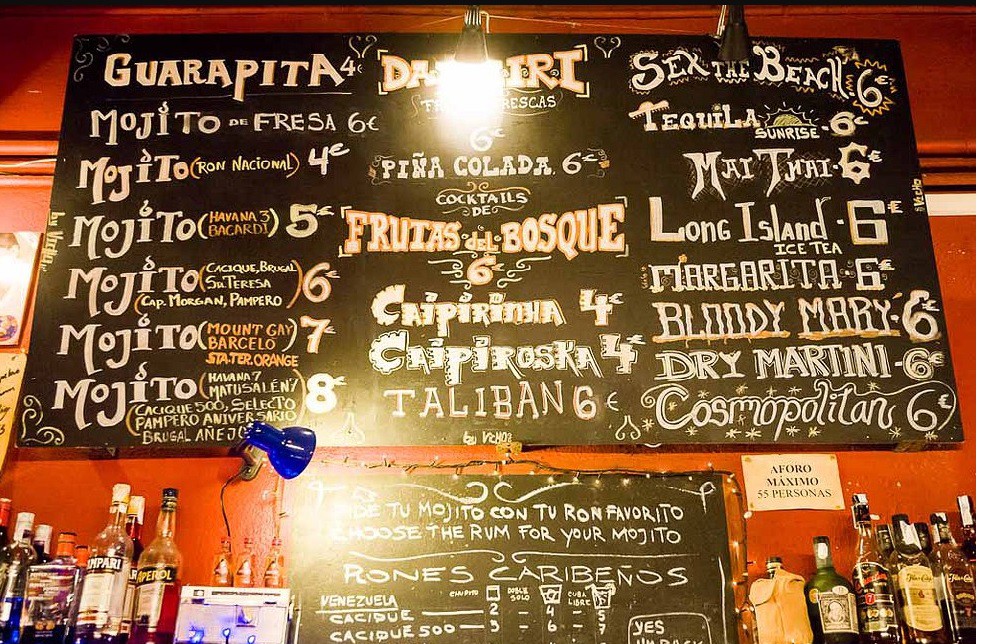 GUARAPITA 4€
MOJITO DE FRESA 6€
MOJITO (RON NACIONAL) 4€
MOJITO (HAVANA 3 BACARDI) 5€
MOJITO (CACIQUE, BRUGAL
STA TERESA
CAP. MORGAN, PAMPERO) 6€
MOJITO (MOUNT GAY
BARCELÓ
STA.TER.ORANGE) 7€
MOJITO (HAVANA 7
MATUSALEN 7
CACIQUE 500, SELECTO
PAMPERO ANIVERSARIO
BRUGAL AÑEJO 8€
FRESCAS
6€
PIÑA COLADA. 6€
COCKTAILS
DE
FRUTAS del BOSQUE
6€
CAIPIRINHA 4€
CAIPIROSKA 4€
TALIBAN 6€
SEX THE BEACH. 6€
TEQUILA SUNRISE - 6€
MAI THAI - 6€
LONG ISLAND - 6€
ICE TEA
MARGARITA - 6€
BLOODY MARY - 6€
DRY MARTINI - 6€
COSMOPOLITAN 6€
AFORO
MÁXIMO
55 PERSONAS
TU MOJITO CON TU RON FAVORITO
CHOOSE THE RUM FOR YOUR MOJITO
RONES CARIBEÑOS
CHUPITO DOBLE SOLO CUBA LIBRE
VENEZUELA
CACIQUE 2 - 4 - 5
CACIQUE 500 3
YES
CAMPARI
APEROL